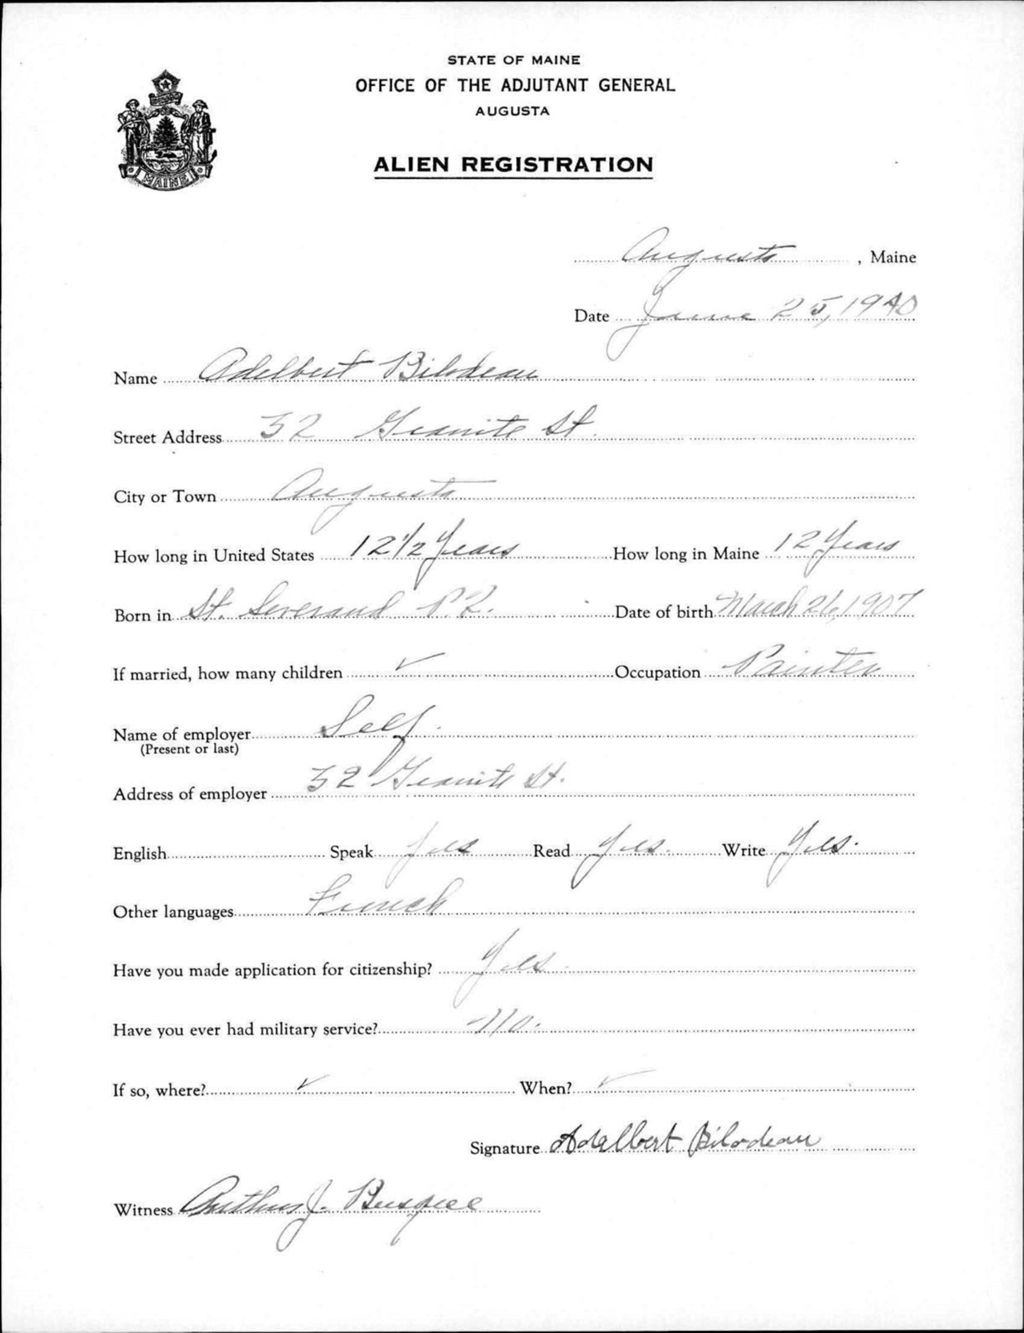 STATE OF MAINE
OFFICE OF THE ADJUTANT GENERAL
AUGUSTA
ALIEN REGISTRATION
MAINE
Augusta, Maine
Date June 25, 1940
Name Adelbert Bilodeau
Street Address 32 Granite St.
City or Town Augusta
How long in United States 12 1/2 Years How long in Maine 12 Years
Born in St. P.Q. Date of birth March 26, 1907
If married, how many children ✓ Occupation Painter
Name of employer Self.
(Present or last)
Address of employer 32 Granite St.
English Speak Yes Read Yes. Write Yes.
Other languages French
Have you made application for citizenship? Yes.
Have you ever had military service? No.
If so, where? ✓ When? ✓
Signature Adelbert Bilodeau
Witness Arthur J.